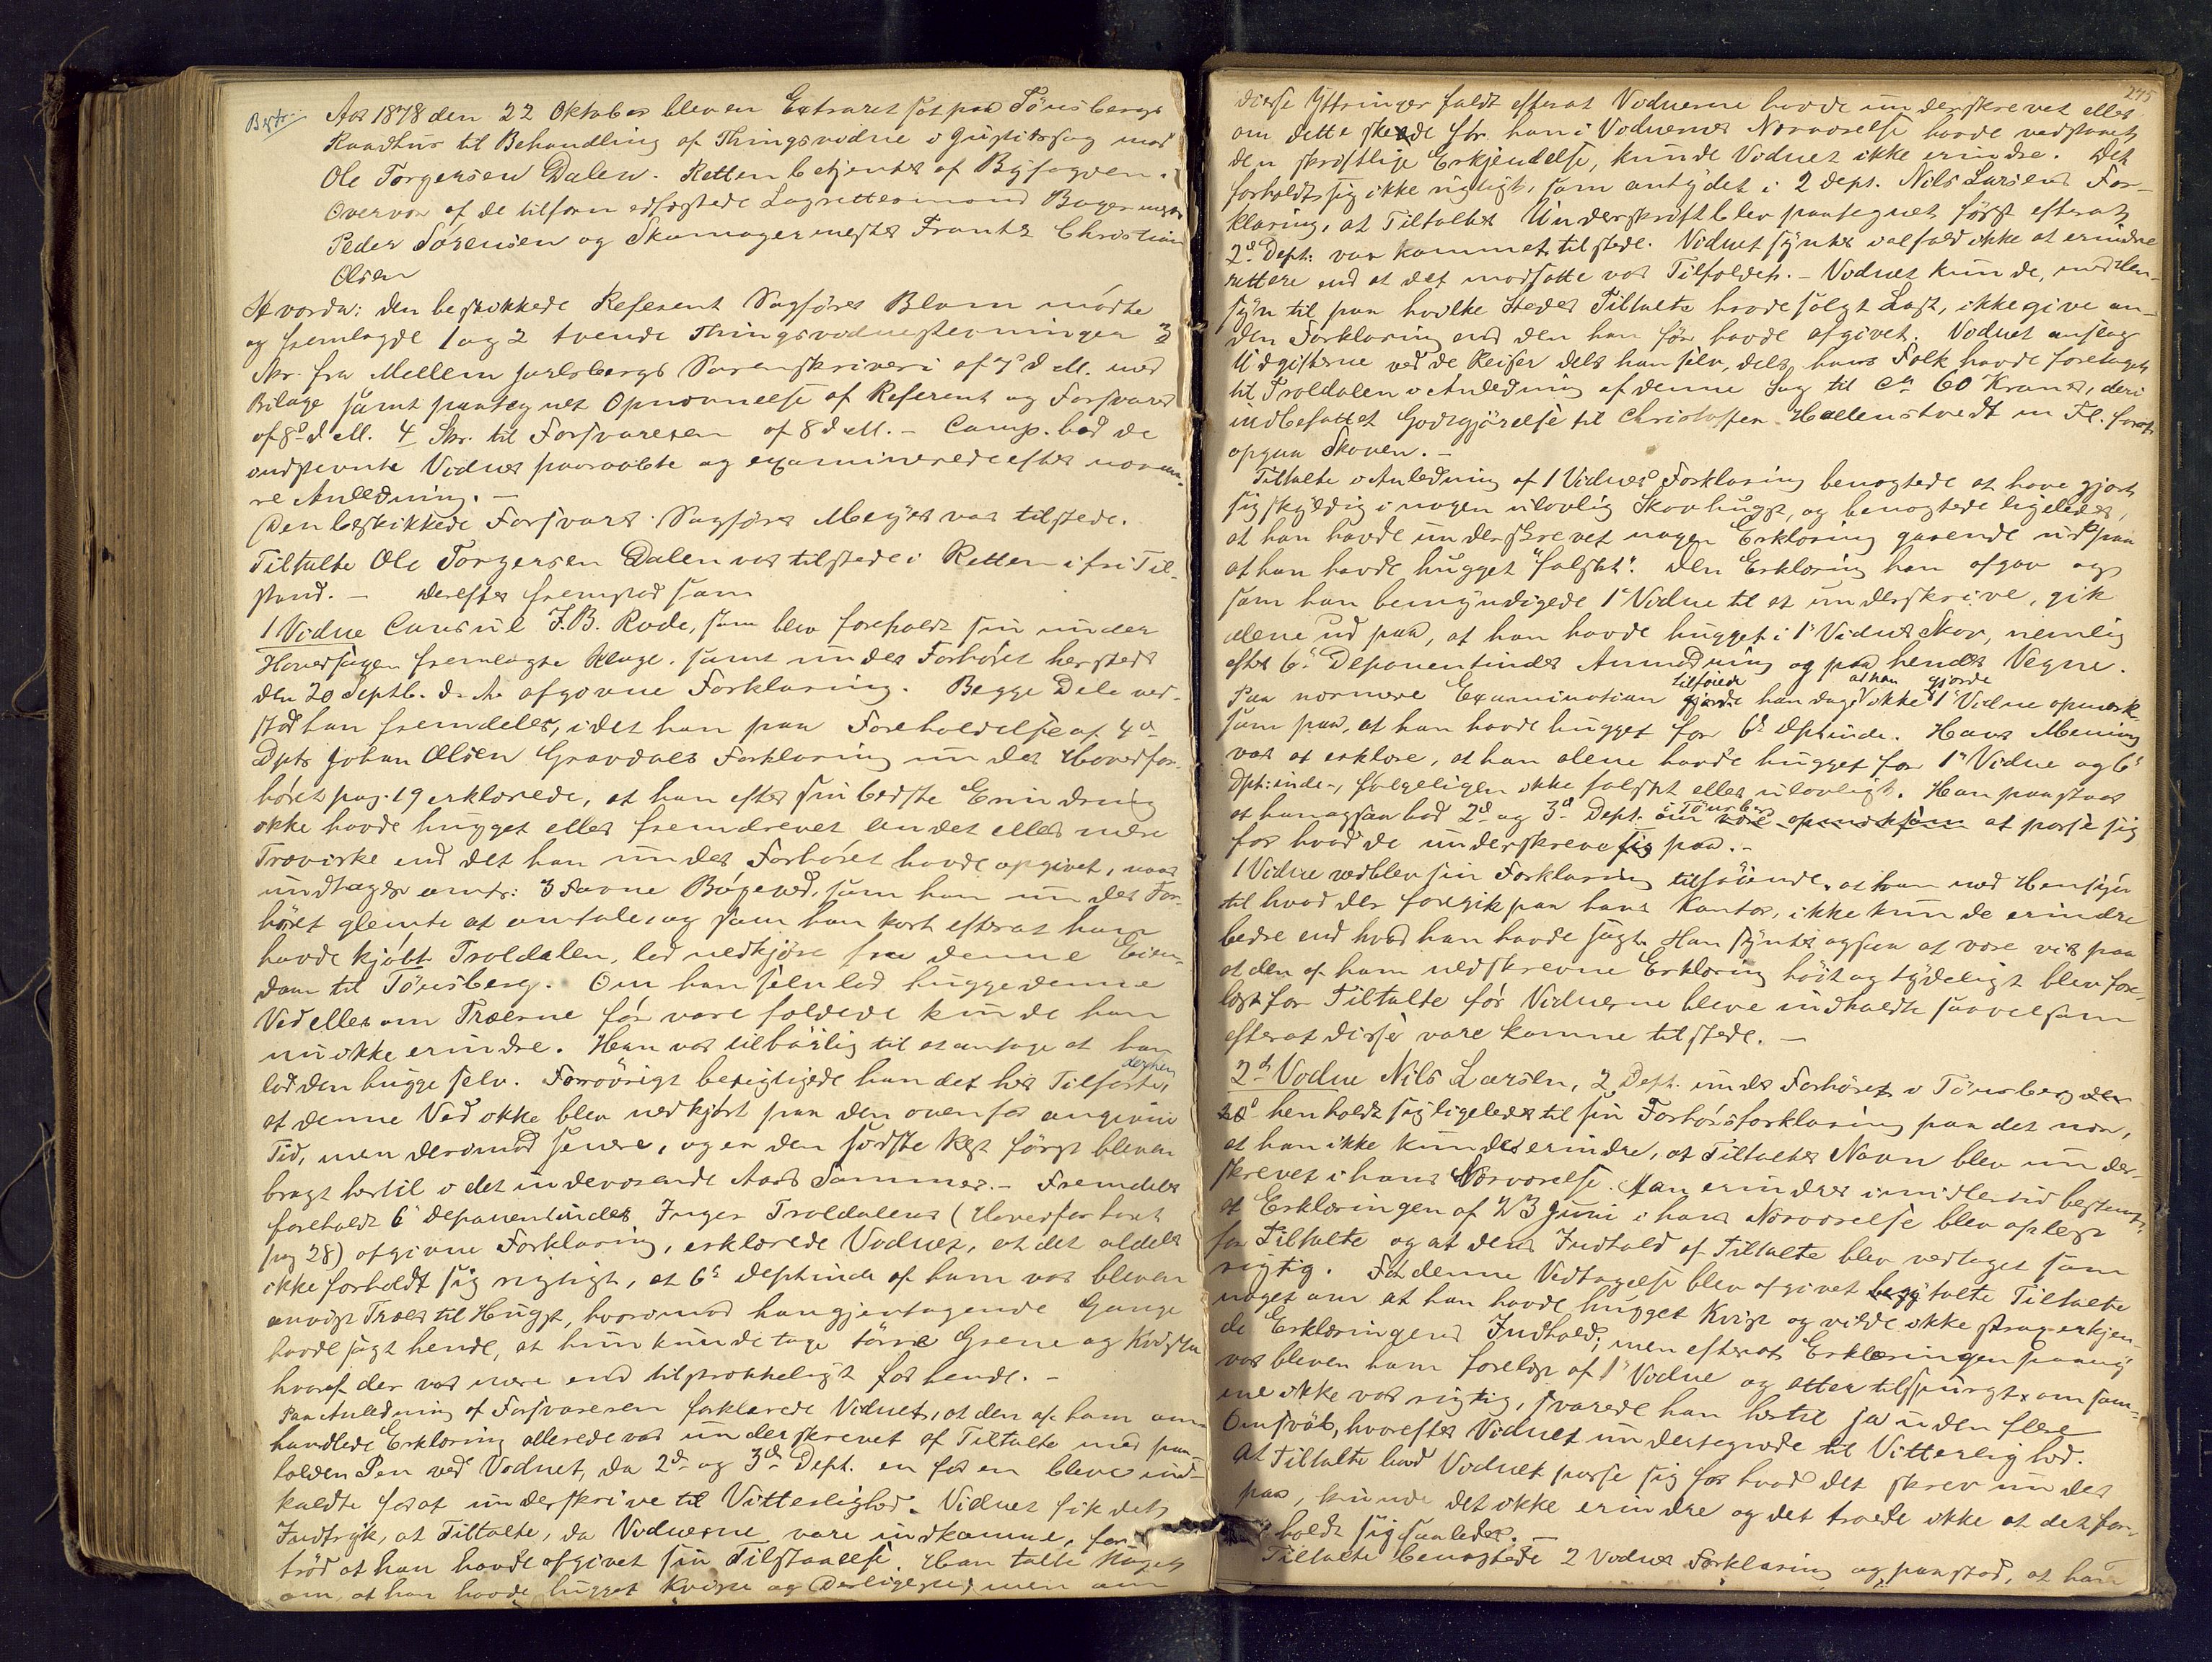 Bstr.
Aar 1878 den 22 Oktober blev en Extraret sat paa Tönsbergs
Raadhus til Behandling af Thingsvidne i Justitssag mod
Ole Torgersen Dalen. Retten betjentes af Byfogden.
Overvær af de tilforn edfæstede Lagrettesmænd Bagermester
Peder Sörensen og Skomagermester Frantz Christian
Olsen
Hvorda: den beskikkede Referent Sagförer Blom mødte
og fremlagde 1 og 2 tvende Thingsvidnestevninger 3
Skr. fra Mellem Jarlsbergs Sorenskriveri af 7 d M. med
Bilage samt paategnet Opnævnelse af Referent og Forsvarer
af 8 d M. 4 Skr. til Forsvareren af 8 d M. – Comp. bad de
indstevnte Vidner paaraabte og examinerede efter nærme-
re Anledning. –
Den beskikkede Forsvarer Sagförer Meyer var tilstede.
Tiltalte Ole Torgersen Dalen var tilstede i Retten i fri Til-
stand. – Derefter fremstod som
1 Vidne Consul J.B. Rode, som blev foreholdt sin under
Hovedsagen fremlagte Klage samt under Forhöret her sted
den 20 Septb. d. A. afgivne Forklaring. Begge Dele ved-
stod han fremdeles, idet han paa Foreholdelse af 4de
Dpts Johan Olsen Gravdals Forklaring under Hovedfor-
höret pag. 19 erklærede, at han efter sin bedste Erindring
ikke havde hugget eller fremdrevet andet eller mere
Trævirke end det han under Forhöret havde opgivet, naar
undtages omtr: 3 Favne Bögeved, som han under For-
höret glemte at omtale, og som han kort efterat han
havde kjöbt Troldalen, lod nedkjöre fra denne Eien-
dom til Tönsberg. Om han selv lod hugge denne
Ved eller om Træerne för vare fældede kunde han
nu ikke erindre. Han var tilböielig til at antage at han
lod den hugge selv. Forövrigt berigtigede han det her Tilförte derhen,
at denne Ved ikke blev nedkjört paa den ovenfor angivne
Tid, men derimod senere, og er den sidste Rest först bleven
bragt hertil i det indeværende Aars Sommer. – Fremdeles
foreholdt 6 Deponentindes Inger Troldalens (Hovedforhöret
pag 28) afgivne Forklaring, erklærede Vidnet, at det aldeles
ikke forholdt sig rigtigt, at 6te Deptinde af ham var bleven
anvist Træer til Hugst, hvorimod han gjentagende Gange
havde sagt hende, at hun kunde tage törre Grene og Kvister
hvoraf der var mere end tilstrækkeligt for hende. –
Paa Anledning af Forsvareren forklarede Vidnet, at den af ham om-
handlede Erklæring allerede var underskrevet af Tiltalte med paa-
holden Pen ved Vidnet, da 2den og 3de Dept. en for en bleve ind-
kaldte for at underskrive til Vitterlighed. Vidnet fik det
Indtryk, at Tiltalte, da Vidnerne vare indkomne, for-
tröd at han havde afgivet sin Tilstaaelse. Han talte Noget
om, at han havde hugget Kviste og Desligeste, men om
245
disse Yttringer faldt efterat Vidnerne havde underskrevet eller
om dette skede før han i Vidnernes Nærværelse havde vedtaget
den skriftlige Erkjendelse, kunde Vidnet ikke erindre. Det
forholdt sig ikke rigtigt, som antydet i 2 Dept. Nils Larsens For-
klaring, at Tiltaltes Underskrift blev paategnet først efterat
2d Dept: var kommet tilstede. Vidnet syntes ialfald ikke at erindre
rettere end at det modsatte var Tilfældet. – Vidnet kunde, med Hen-
syn til paa hvilke Steder Tiltalte havde solgt Last, ikke give an-
den Forklaring end den han før havde afgivet. Vidnet anslog
Udgifterne ved de Reiser dels han selv, dels hans Folk havde foretaget
til Troldalen i Anledning af denne Sag til ca 60 Kroner, deri
indbefattet Godtgjörelse til Christoffer Hallenstvedt m Fl. for at
opgaa Skoven. –
Tiltalte i Anledning af 1 Vidnes Forklaring benegtede at have gjort
sig skyldig i nogen ulovlig Skovhugst, og benegtede ligeledes,
at han havde underskrevet nogen Erklæring gaaende ud paa
at han havde hugget "falskt". Den Erklæring han afgav og
som han bemyndigede 1e Vidne til at underskrive, gik
alene ud paa, at han havde hugget i 1e Vidnes Skov, nemlig
efter 6te Deponentindes Anmodning og paa hendes Vegne.
Paa nærmere Examination tilföiede han dog at han ikke gjorde 1e Vidne opmærk-
som paa, at han havde hugget for 6te Dptinde. Hans Mening
var at erklære, at han alene havde hugget for 1e Vidne og 6te
Dpt:inde, fölgeligen ikke falskt eller ulovligt. Han paastaar
at han ogsaa bad 2d og 3d Dept. i Tönsberg om at passe sig
for hvad de underskreve sig paa. –
1 Vidne vedblev sin Forklaring tilföiende, at han med Hensyn
til hvad der foregik paa hans Kontor, ikke kunde erindre
bedre end hvad han havde sagt. Han syntes ogsaa at være vis paa
at den af ham nedskrevne Erklæring höit og tydeligt blev fore-
læst for Tiltalte för Vidnerne bleve indkaldte saavelsom
efterat disse vare komne tilstede. –
2d Vidne Nils Larsen, 2 Dept. under Forhöret i Tönsberg
henholdt sig ligeledes til sin Forhörsforklaring paa det nær,
at han ikke kunde erindre, at Tiltaltes Navn blev under-
skrevet i hans Nærværelse. Han erindrer imidlertid bestemt,
at Erklæringen af 23 Juni i hans Nærværelse blev oplæst
for Tiltalte og at dens Indhold af Tiltalte blev vedtaget som
rigtig. Før denne Vedtagelse blev afgivet talte Tiltalte
noget om at han havde hugget Kvist og vilde ikke strax erkjen-
de Erklæringens Indhold; men efterat Erklæringen paany
var bleven ham forelæst af 1e Vidne og atter tilspurgt om sam-
me ikke var rigtig, svarede han hertil ja uden flere
Omsvöb, hvorefter Vidnet undertegnede til Vitterlighed.
At Tiltalte bad Vidnet passe sig for hvad det skrev under
paa, kunde det ikke erindre og det troede ikke at det for-
holdt sig saaledes. –
Tiltalte benegtede 2 Vidnes Forklaring og paastod, at han